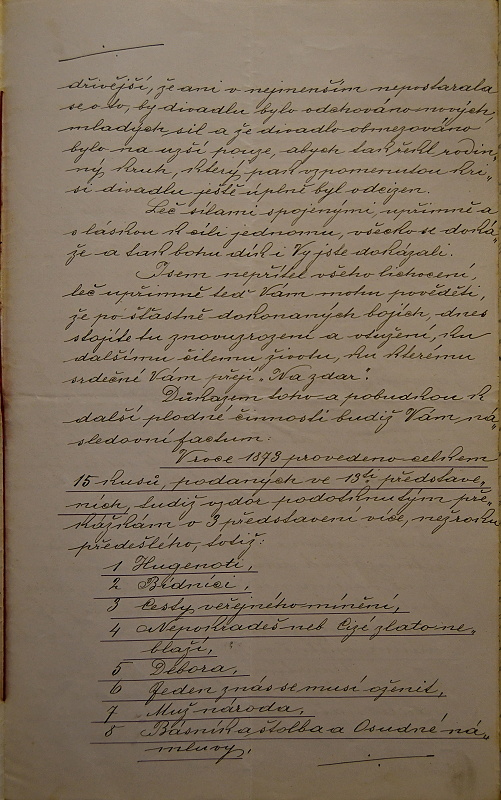 dřívější, že ani v nejmenším nepostarala
se o to, by divadlu bylo odchováno nových,
mladých sil a že divadlo obmezováno
bylo na užší pouze, abych tak řekl rodin„
ný kruh, který pak vzpomenutou kri„
si divadlu ještě úplně byl odcizen.
Leč silami spojenými, upřímně a
s láskou k cíli jednomu, všecko se doká„
že a tak bohu dík i Vy jste dokázali.
Jsem nepřítel všeho lichocení,
leč upřímně teď Vám mohu pověděti,
že po šťastně dokonaných bojích, dnes
stojíte tu znovuzrození a otužení, ku
dalšímu čilému životu, ku kterému
srdečné Vám přeji „Na zdar“.
Důkazem toho a pobudkou k
další plodné činnosti budiž Vám ná„
sledovní factum:
V roce 1873 provedeno celkem
15 kusů, podaných ve 13ti představe„
ních, tudíž vzdor podotknutým pře„
kážkám o 3 představení více, než roku
předešlého, totiž:
1 Hugenoti,
2 Bídníci,
3 Cesty veřejného mínění,
4 Nepokradeš neb Cizí zlato ne„
blaží,
5 Debora,
6 Jeden z nás se musí oženit,
7 Muž národa,
8 Básníka štolba a Osudné ná„
mluvy,